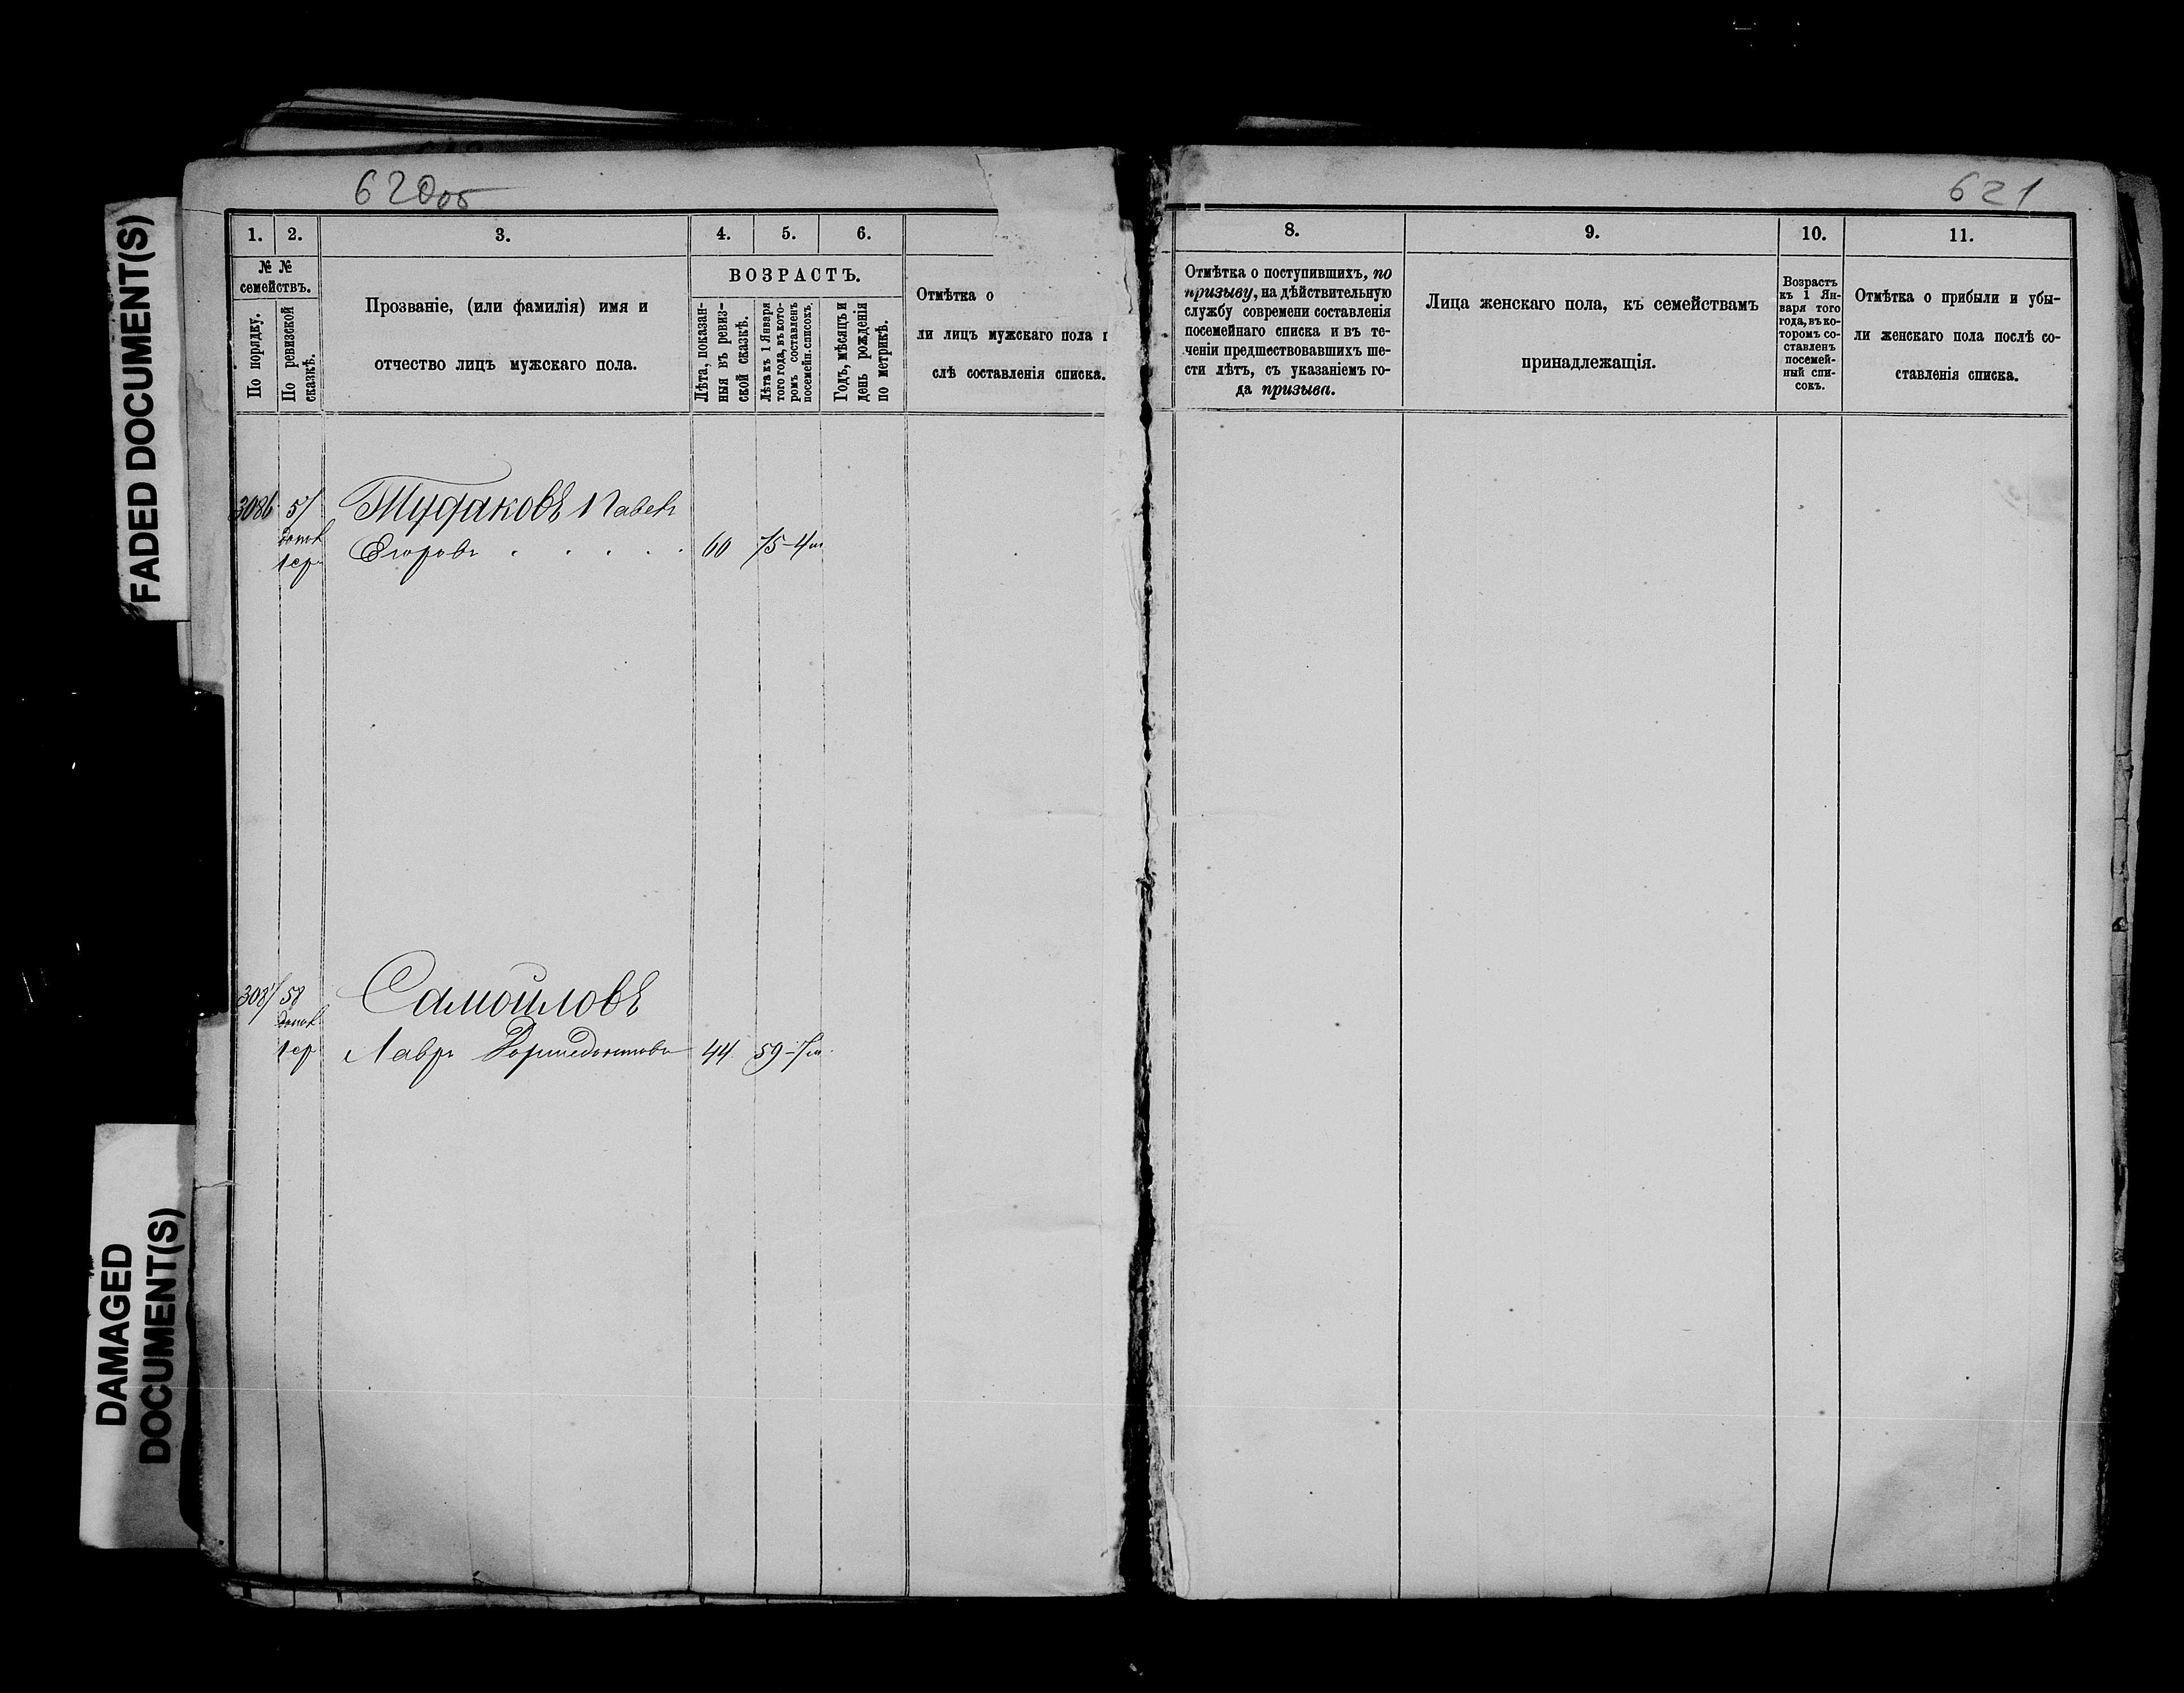 620об
621
FADED DOCUMENT(S)
DAMAGED
DOCUMENT(S)
1.
2.
3.
4.
5.
6.
№ №
семействъ.
По порядку.
По ревизской
сказкѣ.
Прозваніе, (или фамилія) имя и
отчество лицъ мужскаго пола.
ВОЗРАСТЪ.
Лѣта, показан-
ныя въ ревиз-
ской сказкѣ.
Лѣта къ 1 Января
того года, въ кото-
ромъ составленъ
посемейн. списокъ.
Годъ, мѣсяцъ и
день рожденія
по метрикѣ.
Отмѣтка о
ли лицъ мужскаго пола п
слѣ составленія списка.
8.
9.
10.
11.
Отмѣтка о поступившихъ, по
призыву, на дѣйствительную
службу современи составленія
посемейнаго списка и въ те-
ченіи предшествовавшихъ ше-
сти лѣтъ, съ указаніемъ го-
да призыва.
Лица женскаго пола, къ семействамъ
принадлежащія.
Возрастъ
къ 1 Ян-
варя того
года, въ ко-
торомъ со-
ставленъ
посемей-
ный спи-
сокъ.
Отмѣтка о прибыли и убы-
ли женскаго пола послѣ со-
ставленія списка.
3086 57 Павелъ
Егоровъ 60 75-4м
3087 58 Самойловъ
Лавръ Дормедонтовъ 44 59-7м